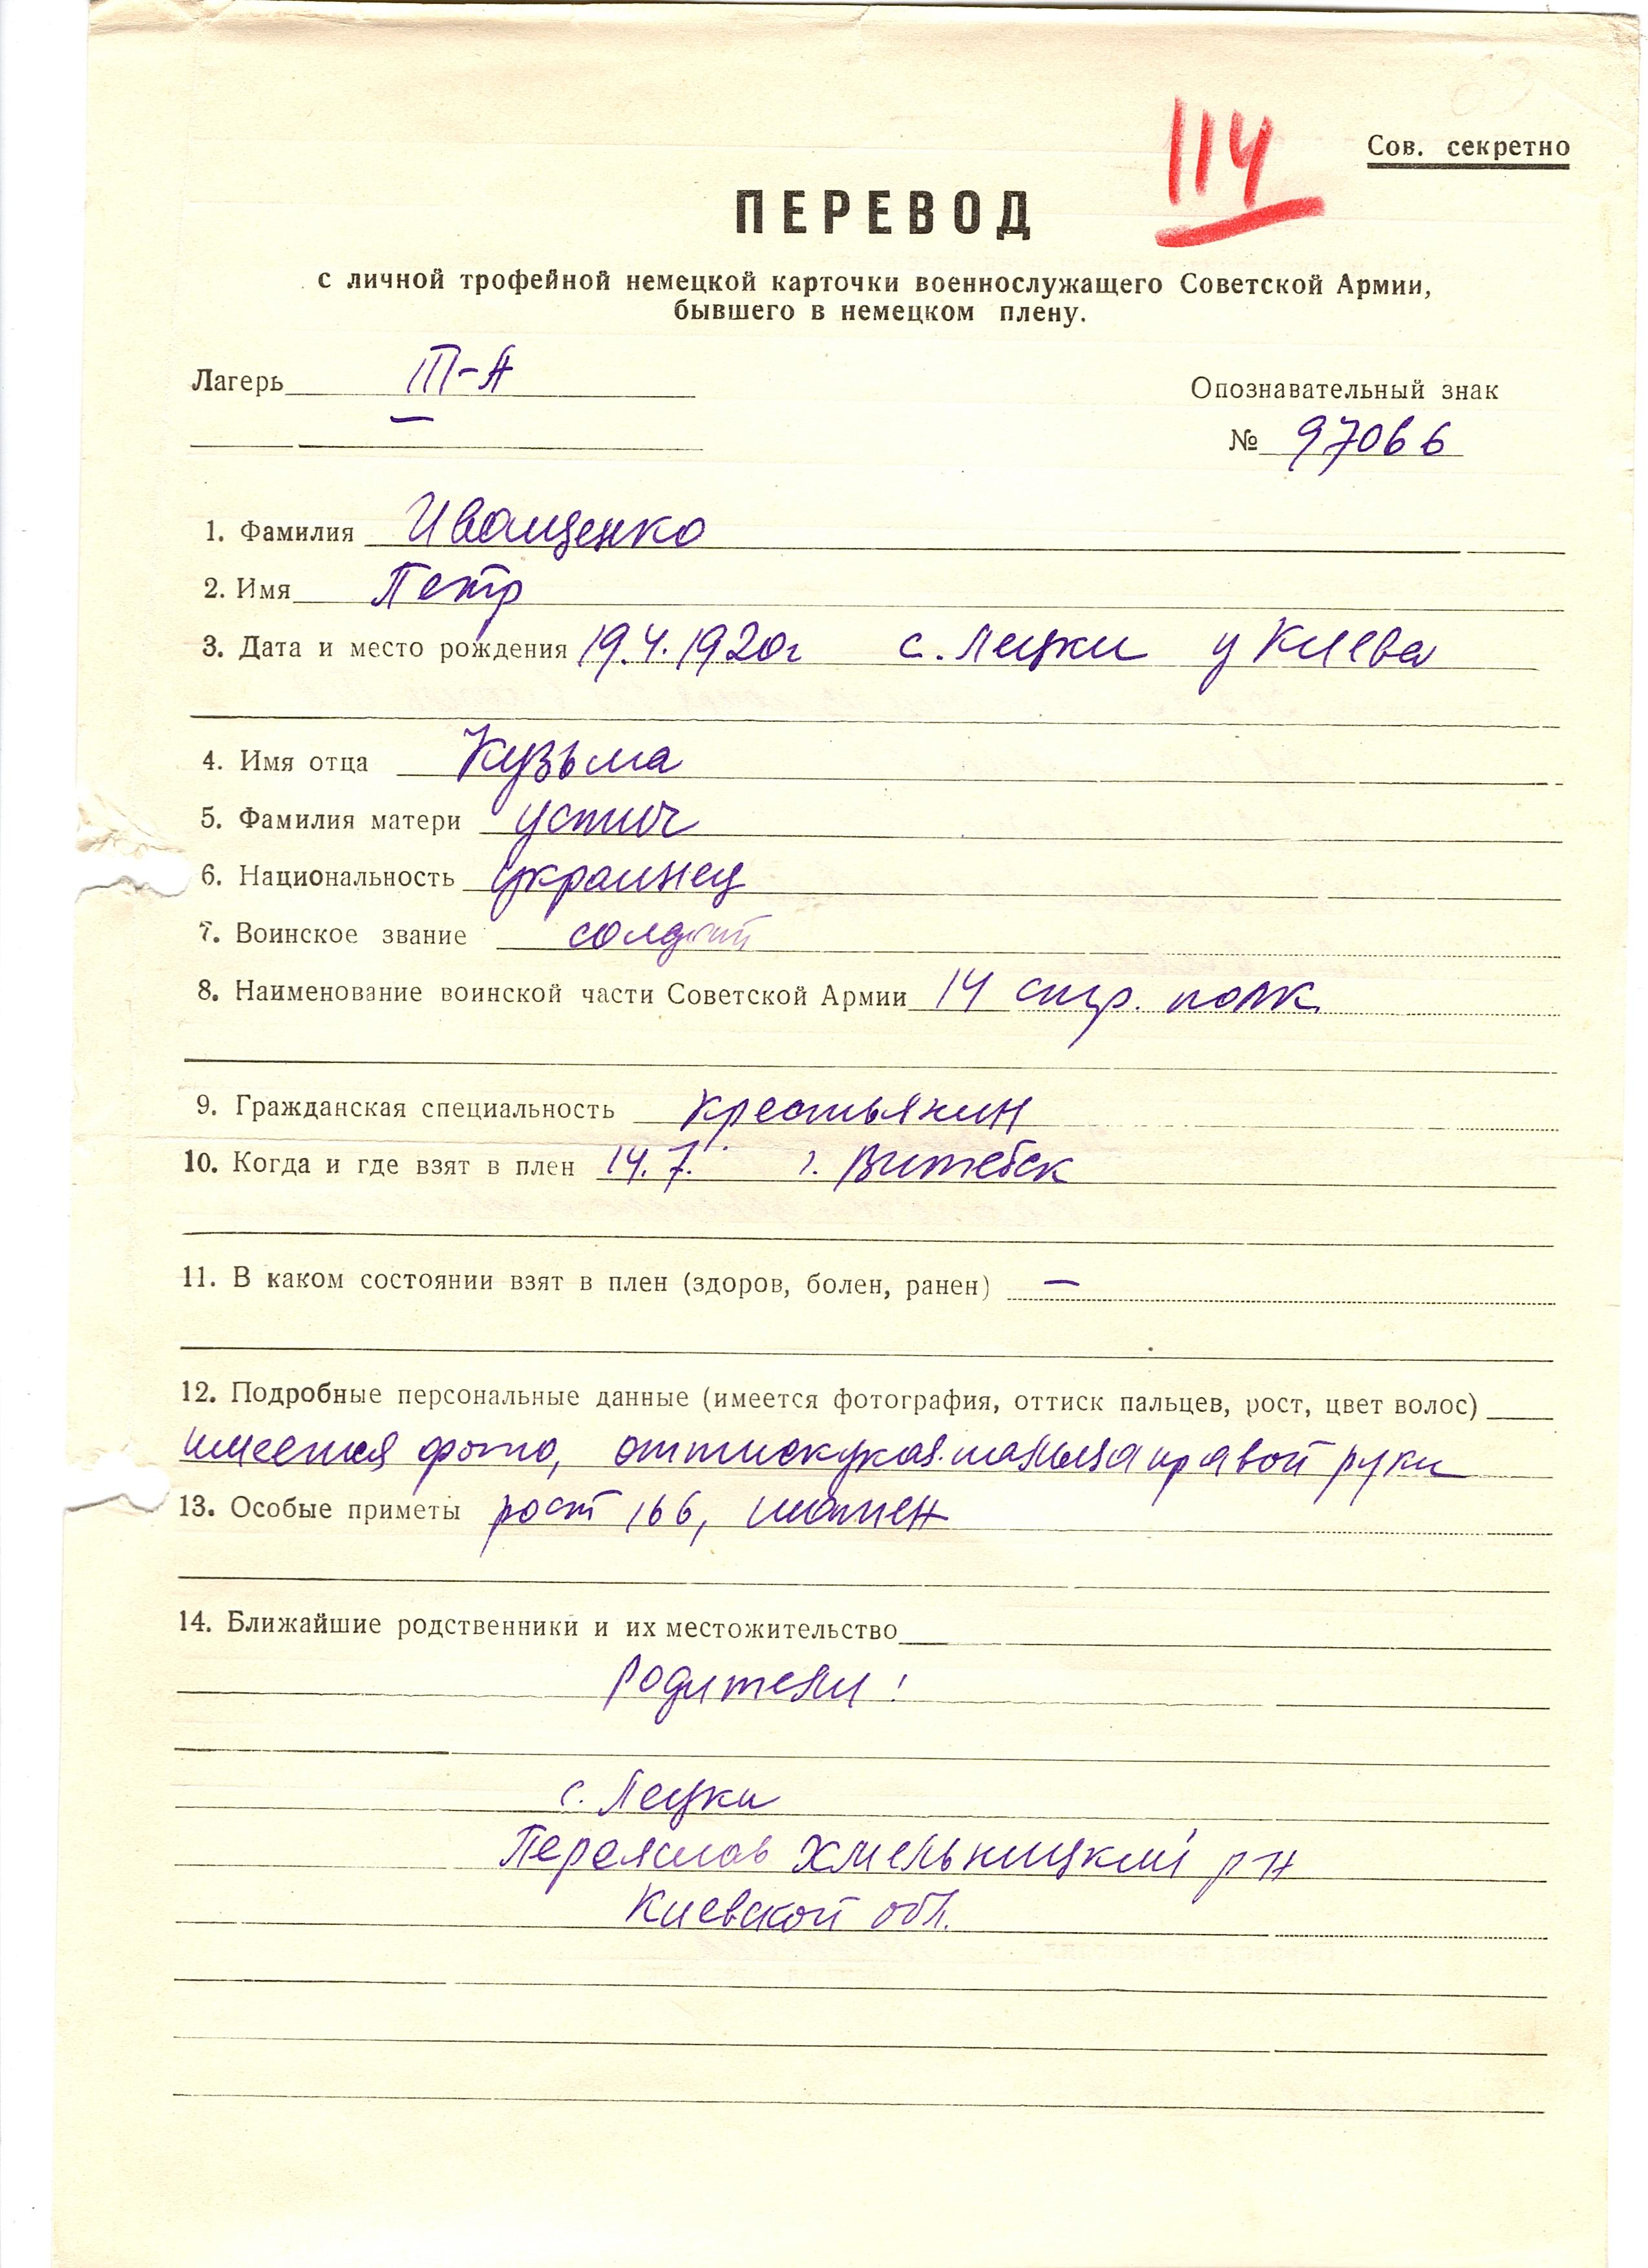 114
Сов. секретно
ПЕРЕВОД
с личной трофейной немецкой карточки военнослужащего Советской Армии,
бывшего в немецком плену.
Лагерь III-А
Опознавательный знак
—
№ 97066
1. Фамилия Иващенко
2. Имя Петр
3. Дата и место рождения 19.4.1920г с. Лецки у Киева
4. Имя отца Кузьма
5. Фамилия матери Устич
6. Национальность Украинец
7. Воинское звание солдат
8. Наименование воинской части Советской Армии 14 стр. полк
9. Гражданская специальность крестьянин
10. Когда и где взят в плен 14.7. г. Витебск
11. В каком состоянии взят в плен (здоров, болен, ранен) —
12. Подробные персональные данные (имеется фотография, оттиск пальцев, рост, цвет волос)
имеется фото, оттиск указ. пальца правой руки
13. Особые приметы рост 166, шатен
14. Ближайшие родственники и их местожительство
Родители:
с. Лецки
Переяслав Хмельницкий р-н
Киевской обл.